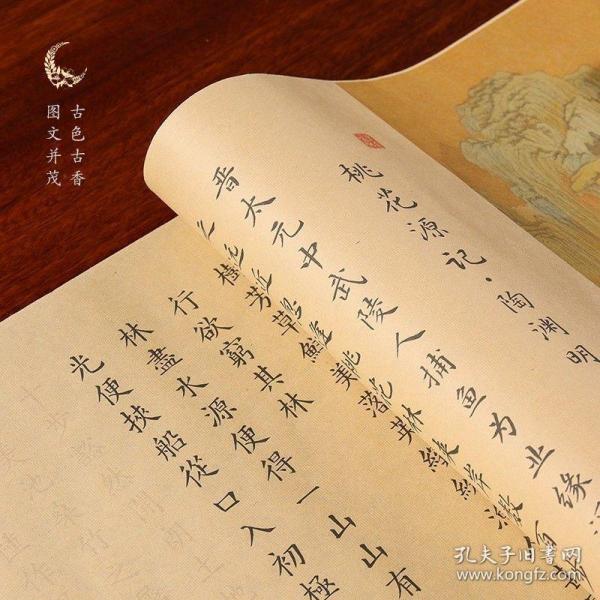 古色古香
图文并茂
桃花源记·陶渊明
晋太元中武陵人捕鱼为业缘
芳草鮮美落英繽紛
行欲窮其林
林盡水源便得一山山有
光便挾船從口入初極
孔夫子旧书网
www.kongfz.com